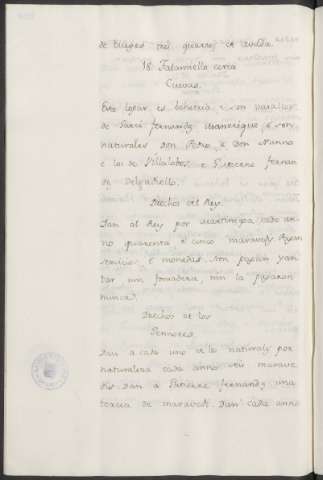 de Burgos mill quinientos et
18. Fataniella cerca
Cuevas.
Este logar es behetria e son vasallos
de Garci Fernandz Manrrique e son
naturales Don Pedro, e Don Nunno
e los de Villalobos, e Gutierre Fernan
dz Delgadiello.
Drechos del Rey.
Dan al Rey por martiniega cada an-
no quarenta e cinco maraveds. Pagan
servicios e monedas. Non pagan yan
tar nin fonsadera, nin la pagaron
nunca.
Drechos de los
Sennores.
Dan a cada uno de los naturals por
naturaleza cada anno seis marave
dis. Dan a Gutierre Fernandz una
tercia de maravedi. Dan cada anno